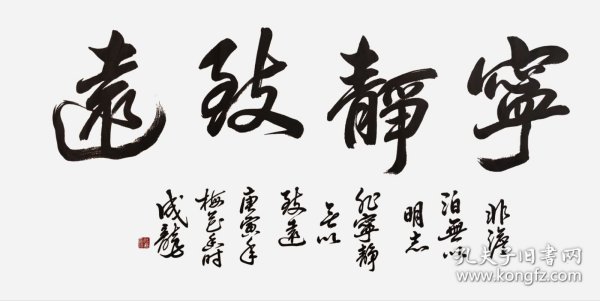 寧靜致遠
非澹
泊無以
明志
非寧靜
無以
致遠
庚寅年
梅花香时
成龍
孔夫子旧书网
www.kongfz.com